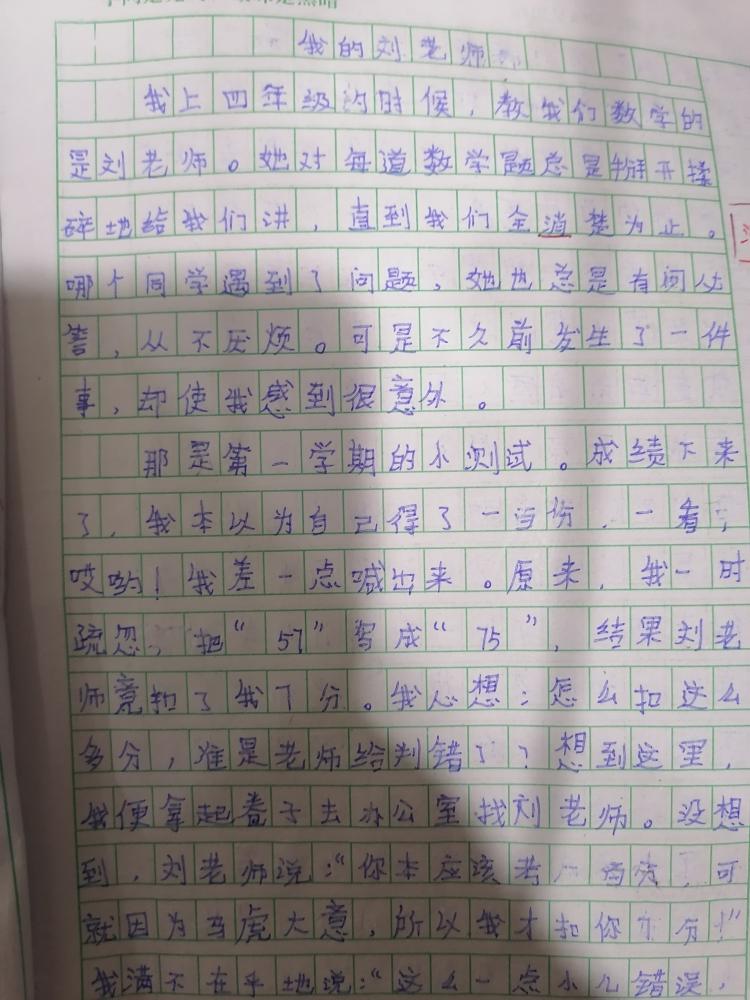 我的刘老师
我上四年级的时候，教我们数学的
是刘老师。她对每道数学题总是掰开揉
碎地给我们讲，直到我们全清楚为止。
哪个同学遇到了问题，她也总是有问必
答，从不厌烦。可是不久前发生了一件
事，却使我感到很意外。
那是第一学期的小测试。成绩下来
了，我本以为自己得了一百分，一看，
哎哟！我差一点喊出来。原来，我一时
疏忽，把“57”写成“75”，结果刘老
师竟扣了我7分。我心想：怎么扣这么
多分，准是老师给判错了？想到这里，
我便拿起卷子去办公室找刘老师。没想
到，刘老师说：“你本应该考一百分，可
就因为马虎大意，所以我才扣你 分！”
我满不在乎地说：“这么一点小儿错误，